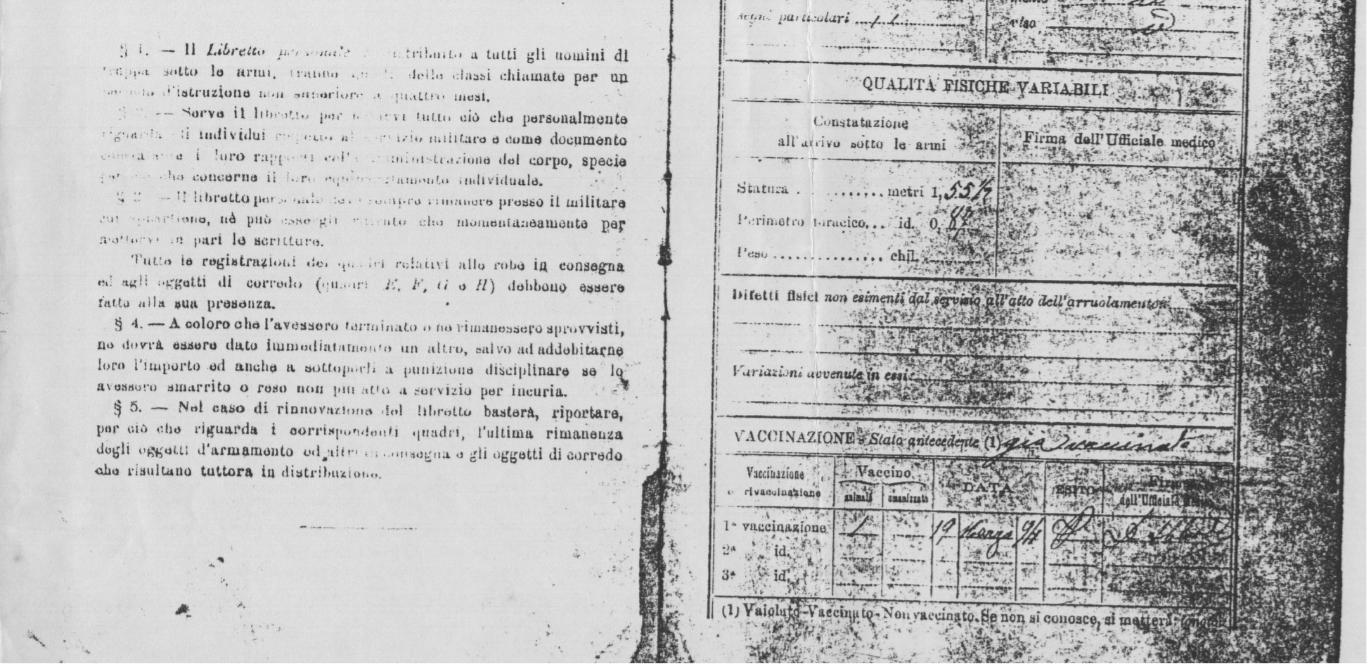 § 1. — Il Libretto personale distribuito a tutti gli uomini di
truppa sotto le armi, tranne quelli delle classi chiamate per un
d'istruzione non superiore a quattro mesi.
— Serve il libretto per tutto ciò che personalmente
riguarda gli individui rispetto al servizio militare e come documento
i loro rapporti coll'amministrazione del corpo, specie
che concerne il loro individuale.
§ — Il libretto personale deve sempre rimanere presso il militare
cui appartiene, nè può essergli ritirato che momentaneamente per
mettervi in pari le scritture.
Tutte le registrazioni dei quadri relativi alle robe in consegna
ed agli oggetti di corredo (quadri E, F, G e H) debbono essere
fatte alla sua presenza.
§ 4. — A coloro che l'avessero terminato o ne rimanessero sprovvisti,
ne dovrà essere dato immediatamente un altro, salvo ad addebitarne
loro l'importo ed anche a sottoporli a punizione disciplinare se lo
avessero smarrito o reso non più atto a servizio per incuria.
§ 5. — Nel caso di rinnovazione del libretto basterà, riportare,
per ciò che riguarda i corrispondenti quadri, l'ultima rimanenza
degli oggetti d'armamento ed altri in consegna e gli oggetti di corredo
che risultano tuttora in distribuzione.
segni particolari
viso
QUALITÀ FISICHE VARIABILI
Constatazione
all'arrivo sotto le armi
Firma dell'Ufficiale medico
Statura . ........... metri 1, 55 1/2
Perimetro toracico... id. 0, 82
Peso ............... chil.
Difetti fisici non esimenti dal servizio all'atto dell'arruolamento
Variazioni avvenute in essi
VACCINAZIONE - Stato antecedente (1) già vaccinato
Vaccinazione o rivaccinazione
Vaccino
animale
umanizzato
DATA
ESITO
Firma dell'Ufficiale
1ª vaccinazione 1 19 Marzo 94
2ª id.
3ª id.
(1) Vaiolato - Vaccinato - Non vaccinato. Se non si conosce, si metterà: